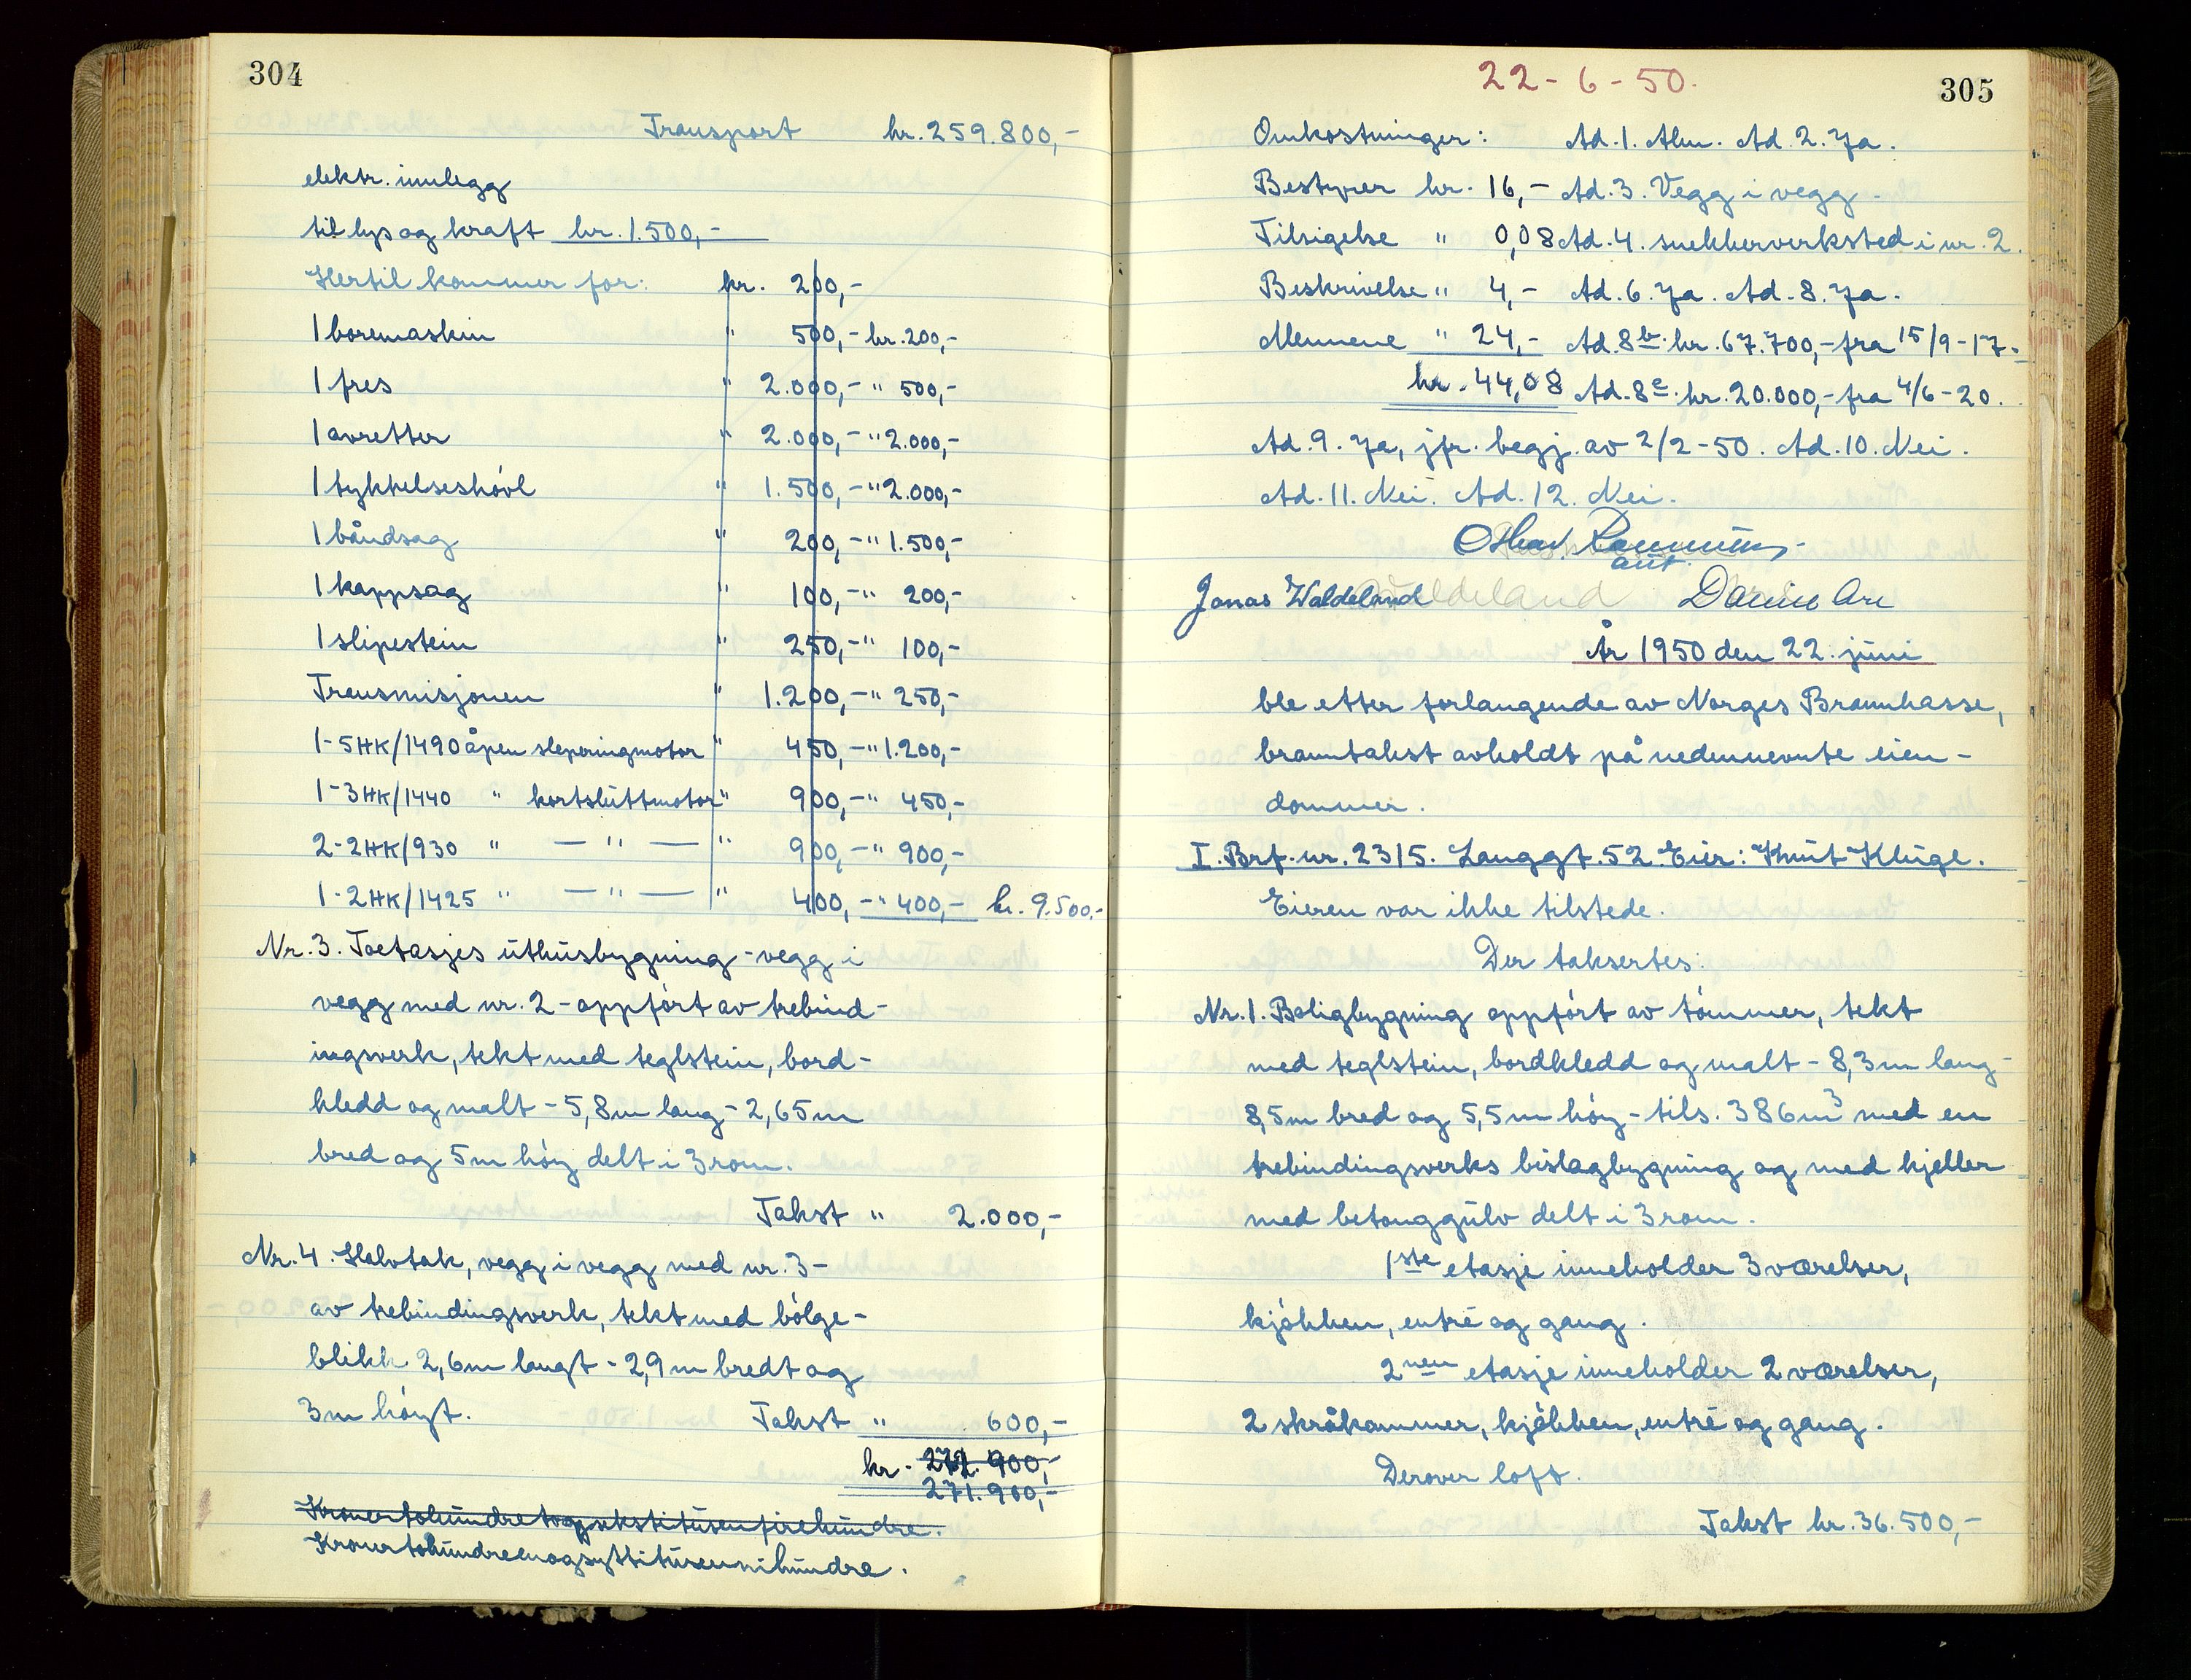 304
Transport kr. 259.800,-
elektr. innlegg
til lys og kraft kr. 1.500,-
Hertil kommer for: kr. 200,-
1 boremaskin " 500,- kr. 200,-
1 fres " 2.000,- " 500,-
1 avretter " 2.000,- " 2.000,-
1 tykkelseshövl " 1.500,- " 2.000,-
1 båndsag " 200,- " 1.500,-
1 kappsag " 100,- " 200,-
1 slipestein " 250,- " 100,-
Transmisjonen " 1.200,- " 250,-
1-5HK/1490 åpen sleperingmotor " 450,- " 1.200,-
1-3HK/1440 " kortslúttmotor " 900,- " 450,-
2-2HK/930 " — " — " 900,- " 900,-
1-2HK/1425 " — " — " 400,- " 400,- kr. 9.500,-
Nr. 3. Toetasjes úthúsbygning - vegg i
vegg med nr. 2 - oppfört av trebind-
ingsverk, tekt med teglstein, bord-
kledd og malt - 5,8m lang - 2,65m
bred og 5m höy delt i 3 rom.
Takst " 2.000,-
Nr. 4. Halvtak, vegg i vegg med nr. 3 -
av trebindingsverk, tekt med bölge-
blikk 2,6m langt - 2,9m bredt og
3m höyt. Takst " 600,-
kr. 272.900,-
271.900,-
Kronertohúndretogsekstitúsenfirehúndre.
Kronertohúndreenogsyttitúsennihúndre.
22-6-50.
305
Omkostninger: Ad. 1. Alm. Ad. 2. Ja.
Bestyrer kr. 16,- Ad. 3. Vegg i vegg.
Tilsigelse " 0,08 Ad. 4. snekkerverksted i nr. 2.
Beskrivelse " 4,- Ad. 6. Ja. Ad. 8. Ja.
Mennene " 24,- Ad. 8b. kr. 67.700,- fra 15/9-17.
kr. 44,08 Ad. 8c. kr. 20.000,- fra 4/6-20.
Ad. 9. Ja, jfr. begj. av 2/2-50. Ad. 10. Nei.
Ad. 11. Nei. Ad. 12. Nei.
aút.
Jonas Waldeland
År 1950 den 22. júni
ble etter forlangende av Norges Brannkasse,
branntakst avholdt på nedennevnte eien-
dommer.
I. Brf. nr. 2315. Langgt. 52 Eier: Knút Klúge.
Eieren var ikke tilstede.
Der taksertes:
Nr. 1. Boligbygning oppfört av tömmer, tekt
med teglstein, bordkledd og malt - 8,3m lang -
8,5m bred og 5,5m höy - tils. 386m3 med en
trebindingsverks bislagbygning og med kjeller
med betonggúlv delt i 3 rom.
1ste etasje inneholder 3 værelser,
kjökken, entré og gang.
2nen etasje inneholder 2 værelser,
2 skråkammer, kjökken, entré og gang.
Derover loft.
Takst kr. 36.500,-